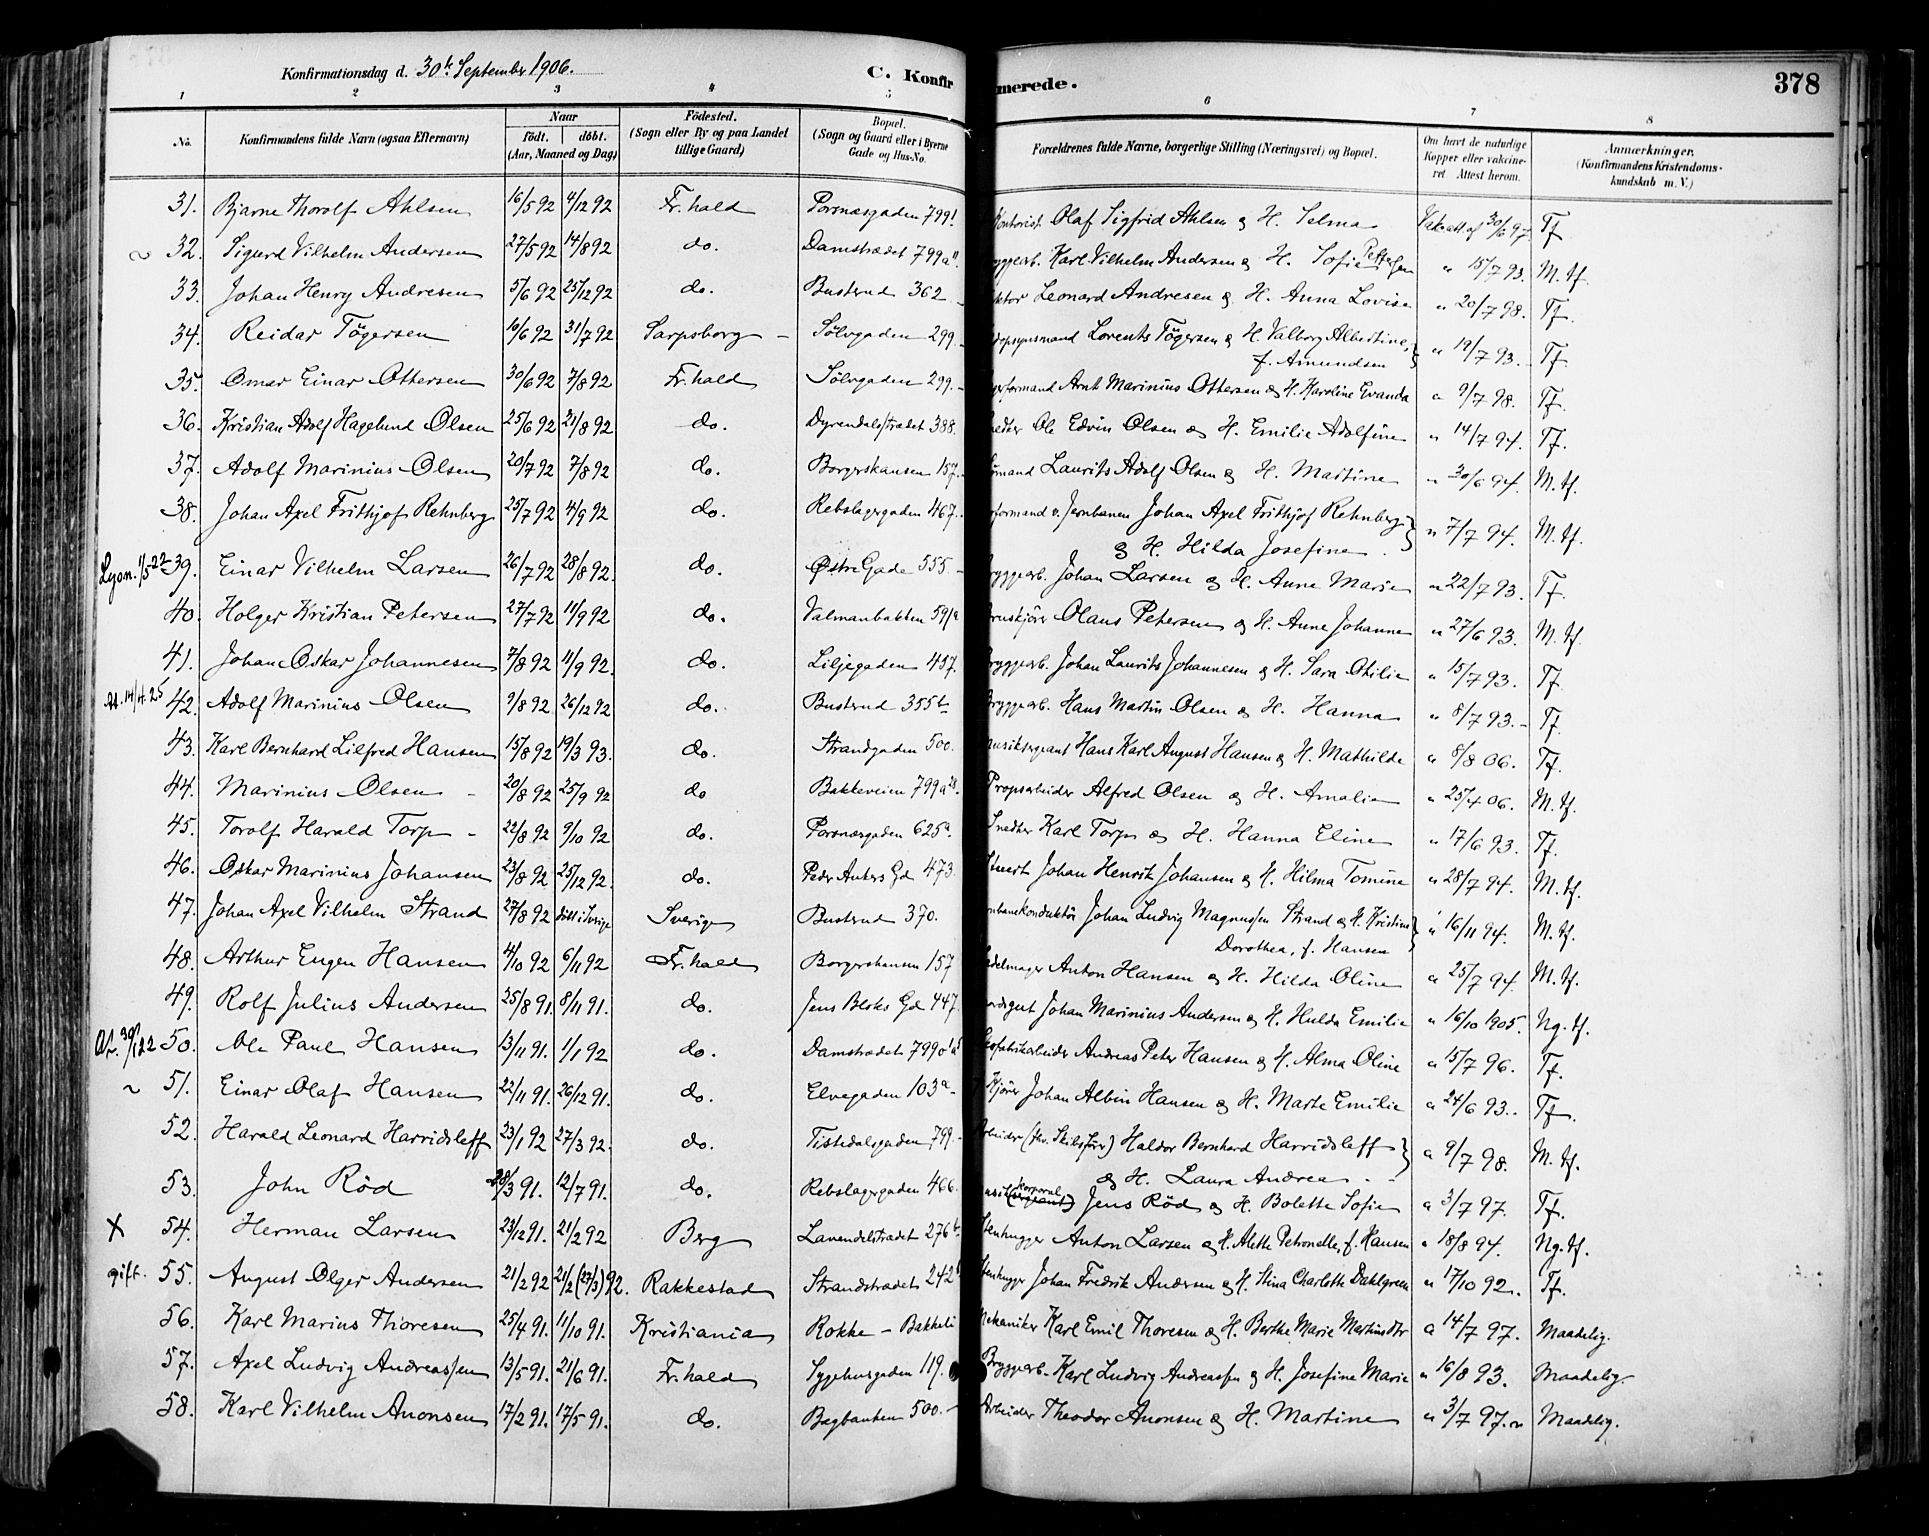 Konfirmationsdag d. 30te September 1906.
C. Konfirmerede.
378
1 2 3 4 5 6 7 8
No. Konfirmandens fulde Navn (ogsaa Efternavn) Naar födt. döbt. (Aar, Maaned og Dag) Födested. (Sogn eller By og paa Landet tillige Gaard) Bopæl. (Sogn og Gaard eller i Byerne Gade og Hus-No. Forældrenes fulde Navne, borgerlige Stilling (Næringsvei) og Bopæl. Om havt de naturlige Kopper eller vakcineret Attest herom. Anmærkninger. (Konfirmandens Kristendomskundskab m. V.)
31. Bjarne Thorolf Ahlsen 16/5 92 4/12 92 Fr.hald Porsnæsgaden 799 Kontorist Olaf Sigfrid Ahlsen & H. Selma Vak. att. af 30/6 97. Tf.
32. Sigurd Vilhelm Andersen 27/5 92 14/8 92 do. Damstrædet 799a Karl Vilhelm Andersen & H. Sofie Pettersen " 15/7 93. M. tf.
33. Johan Henry Andresen 5/6 92 25/12 92 do. Busterud 362 Leonard Andresen & H. Anna Lovise " 20/7 98. Tf.
34. Reidar Tögersen 10/6 92 31/7 92 Sarpsborg Sölvgaden 299. Lorents Tögersen & H. Valborg Albertine, f. Amundsen " 19/7 93. Tf.
35. Omar Einar Ottersen 30/6 92 7/8 92 Fr.hald Sölvgaden 299. formand Arnt Marinius Ottersen & H. Karoline Evanda " 9/7 98. Tf.
36. Kristian Adolf Hagelund Olsen 25/6 92 21/8 92 do. Dyrendalstrædet 388. Ole Edvin Olsen & H. Emilie Adolfine " 14/7 94. Tf.
37. Adolf Marinius Olsen 20/7 92 7/8 92 do. Borgerskansen 157. Laurits Adolf Olsen & H. Martine " 30/6 94. M. tf.
38. Johan Axel Frithjof Rehnberg 25/7 92 4/9 92 do. Rebslagergaden 467. formand v. Jernbanen Johan Axel Frithjof Rehnberg & H. Hilda Josefine " 7/7 94. M. tf.
39. Einar Vilhelm Larsen 26/7 92 28/8 92. do. Østre Gade 555 Johan Larsen & H. Anne Marie " 22/7 93. Tf.
40. Holger Kristian Petersen 27/7 92 11/9 92 do. Valmanbakken 591a Olaus Petersen & H. Anne Johanne " 27/6 93. M. tf.
41. Johan Oskar Johannesen 7/8 92 11/9 92. do. Liljegaden 457. Bryggearb. Johan Laurits Johannesen & H. Sara Othilie " 15/7 93. Tf.
42. Adolf Marinius Olsen 9/8 92 26/12 92 do. Busterud 355b Bryggearb. Hans Martin Olsen & H. Hanna " 8/7 93. Tf.
43. Karl Bernhard Lilfred Hansen 15/8 92 19/3 93. do. Strandgaden 500. Hans Karl August Hansen & H. Mathilde " 8/8 06. Tf.
44. Marinius Olsen 20/8 92 25/9 92 do Bakkeveien 799a Propsarbeider Alfred Olsen & H. Amalia " 25/4 06. M. tf.
45. Torolf Harald Torp 22/8 92 9/10 92 do. Porsnæsgaden 625a. Snedker Karl Torp & H. Hanna Eline " 17/6 93. Tf.
46. Oskar Marinius Johansen 23/8 92 25/12 92. do. Peder Ankers Gd 473. Stuert Johan Henrik Johansen & H. Hilma Tomine " 28/7 94. M. tf.
47. Johan Axel Vilhelm Strand 27/8 92 döbt i Sverige Sverige Busterud 370. Johan Ludvig Magnussen Strand & H. Kristine Dorothea, f. Hansen " 16/11 94. M. tf.
48. Arthur Eugen Hansen 4/10 92 6/11 92 Fr.hald Borgerskansen 157 Anton Hansen & H. Hilda Oline " 25/7 94. M. tf.
49. Rolf Julius Andersen 25/8 91. 8/11 91. do. Jens Bloks Gd 447. Johan Marinius Andersen & H. Hulda Emilie " 16/10 1905. Ng. tf.
50. Ole Paul Hansen 13/11 91. 1/1 92 do. Damstrædet 799 Andreas Peter Hansen & H. Alma Oline " 15/7 96. Tf.
51. Einar Olaf Hansen 22/11 91. 26/12 91. do. Elvegaden 103a Kjörer Johan Albin Hansen & H. Marte Emilie " 24/6 93. Tf.
52. Harald Leonard Harridsleff 23/1 92 27/3 92. do. Tistedalsgaden 799. Haldor Bernhard Harridsleff & H. Laura Andrea " 9/7 98. M. tf.
53. John Röd 28/3 91. 12/7 91. do. Rebslagergaden 466. korporal Jens Röd & H. Bolette Sofie " 3/7 97. Tf.
X 54. Herman Larsen 23/12 91. 21/2 92 Berg Lavendelstrædet 276b. Stenhugger Anton Larsen & H. Alette Petronelle, f. Hansen " 18/8 94. Ng. tf.
gift. 55. August Olger Andersen 21/2 92 21/2 (27/3) 92. Rakkestad Strandstrædet 242 Stenhugger Johan Fredrik Andersen & H. Stina Charlotte Dahlgreen " 17/10 92. Tf.
56. Karl Marius Thoresen 25/4 91. 11/10 91. Kristiania Rokke - Bakkeli Mekaniker Karl Emil Thoresen & H. Berthe Marie Martinsdtr " 14/7 97. Maadelig.
57. Axel Ludvig Andreassen 13/5 91. 21/6 91. Fr.hald Sygehusgaden 119. Bryggearb. Karl Ludvig Andreassen & H. Josefine Marie " 16/8 93. Maadelig.
58. Karl Vilhelm Anonsen 17/2 91. 17/5 91. do. Bagbanken 500. Arbeider Theodor Anonsen & H. Martine " 3/7 97. Maadelig.